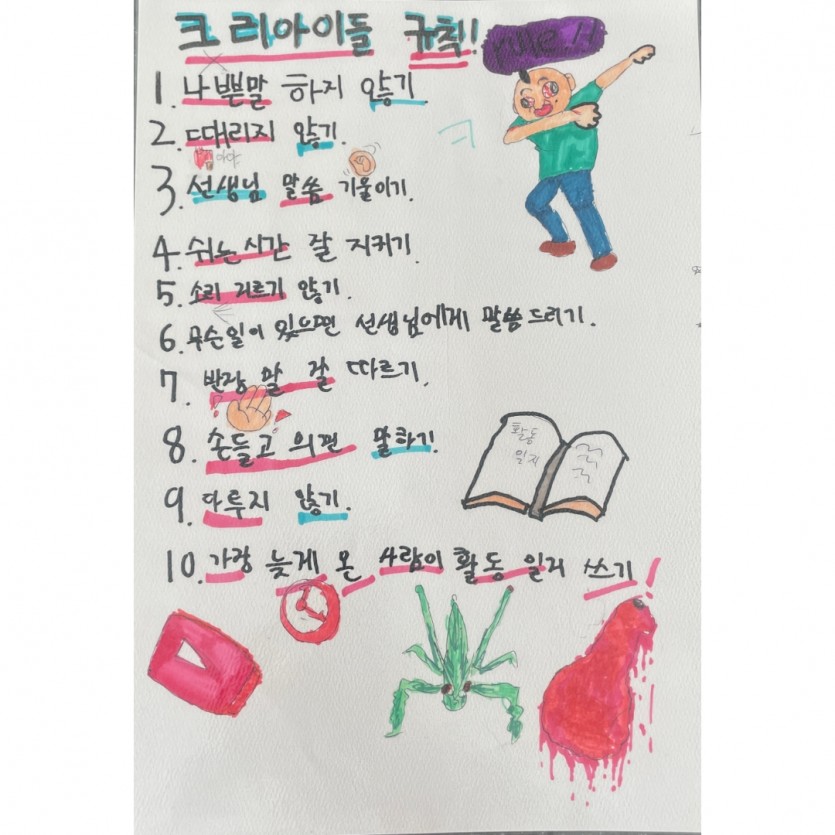 크리아이들 규칙!
rule!!
1. 나쁜말 하지 않기.
2. 때리지 않기.
아야
3. 선생님 말씀 기울이기.
4. 쉬는시간 잘 지키기.
5. 소리 지르기 않기.
6. 무슨일이 있으면 선생님에게 말씀드리기.
7. 반장 말 잘 따르기.
8. 손들고 의견 말하기!
활동
일지
9. 다루지 않기.
10. 가장 늦게 온 사람이 활동 일지 쓰기!